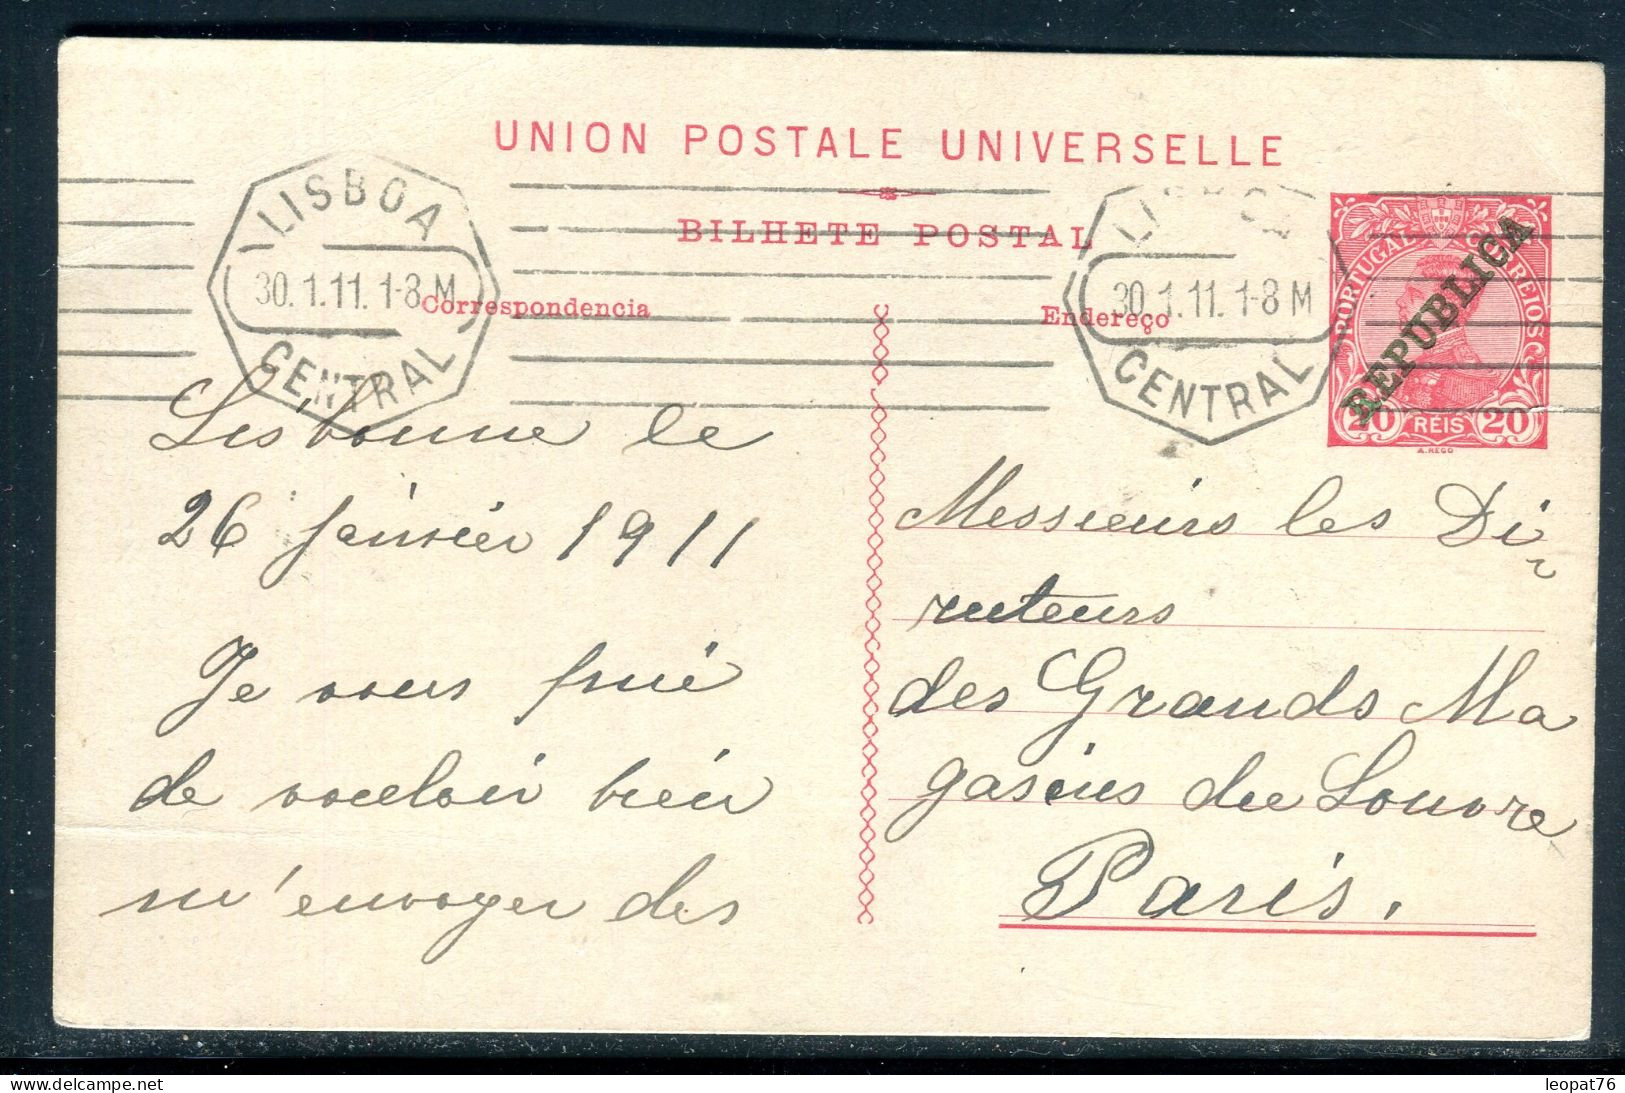 UNION POSTALE UNIVERSELLE
BILHETE POSTAL
LISBOA
30.1.11. 1-8 M
CENTRAL
30.1.11. 1-8 M
CENTRAL
PORTUGAL CORREIOS
REPUBLICA
20 REIS 20
A. REGO
Correspondencia
Lisbonne le
26 janvier 1911
Je vous prie
de vouloir bien
m'envoyer des
Endereço
Messieurs les Di-
recteurs
des Grands Ma
gasins du Louvre
Paris.
leopat76